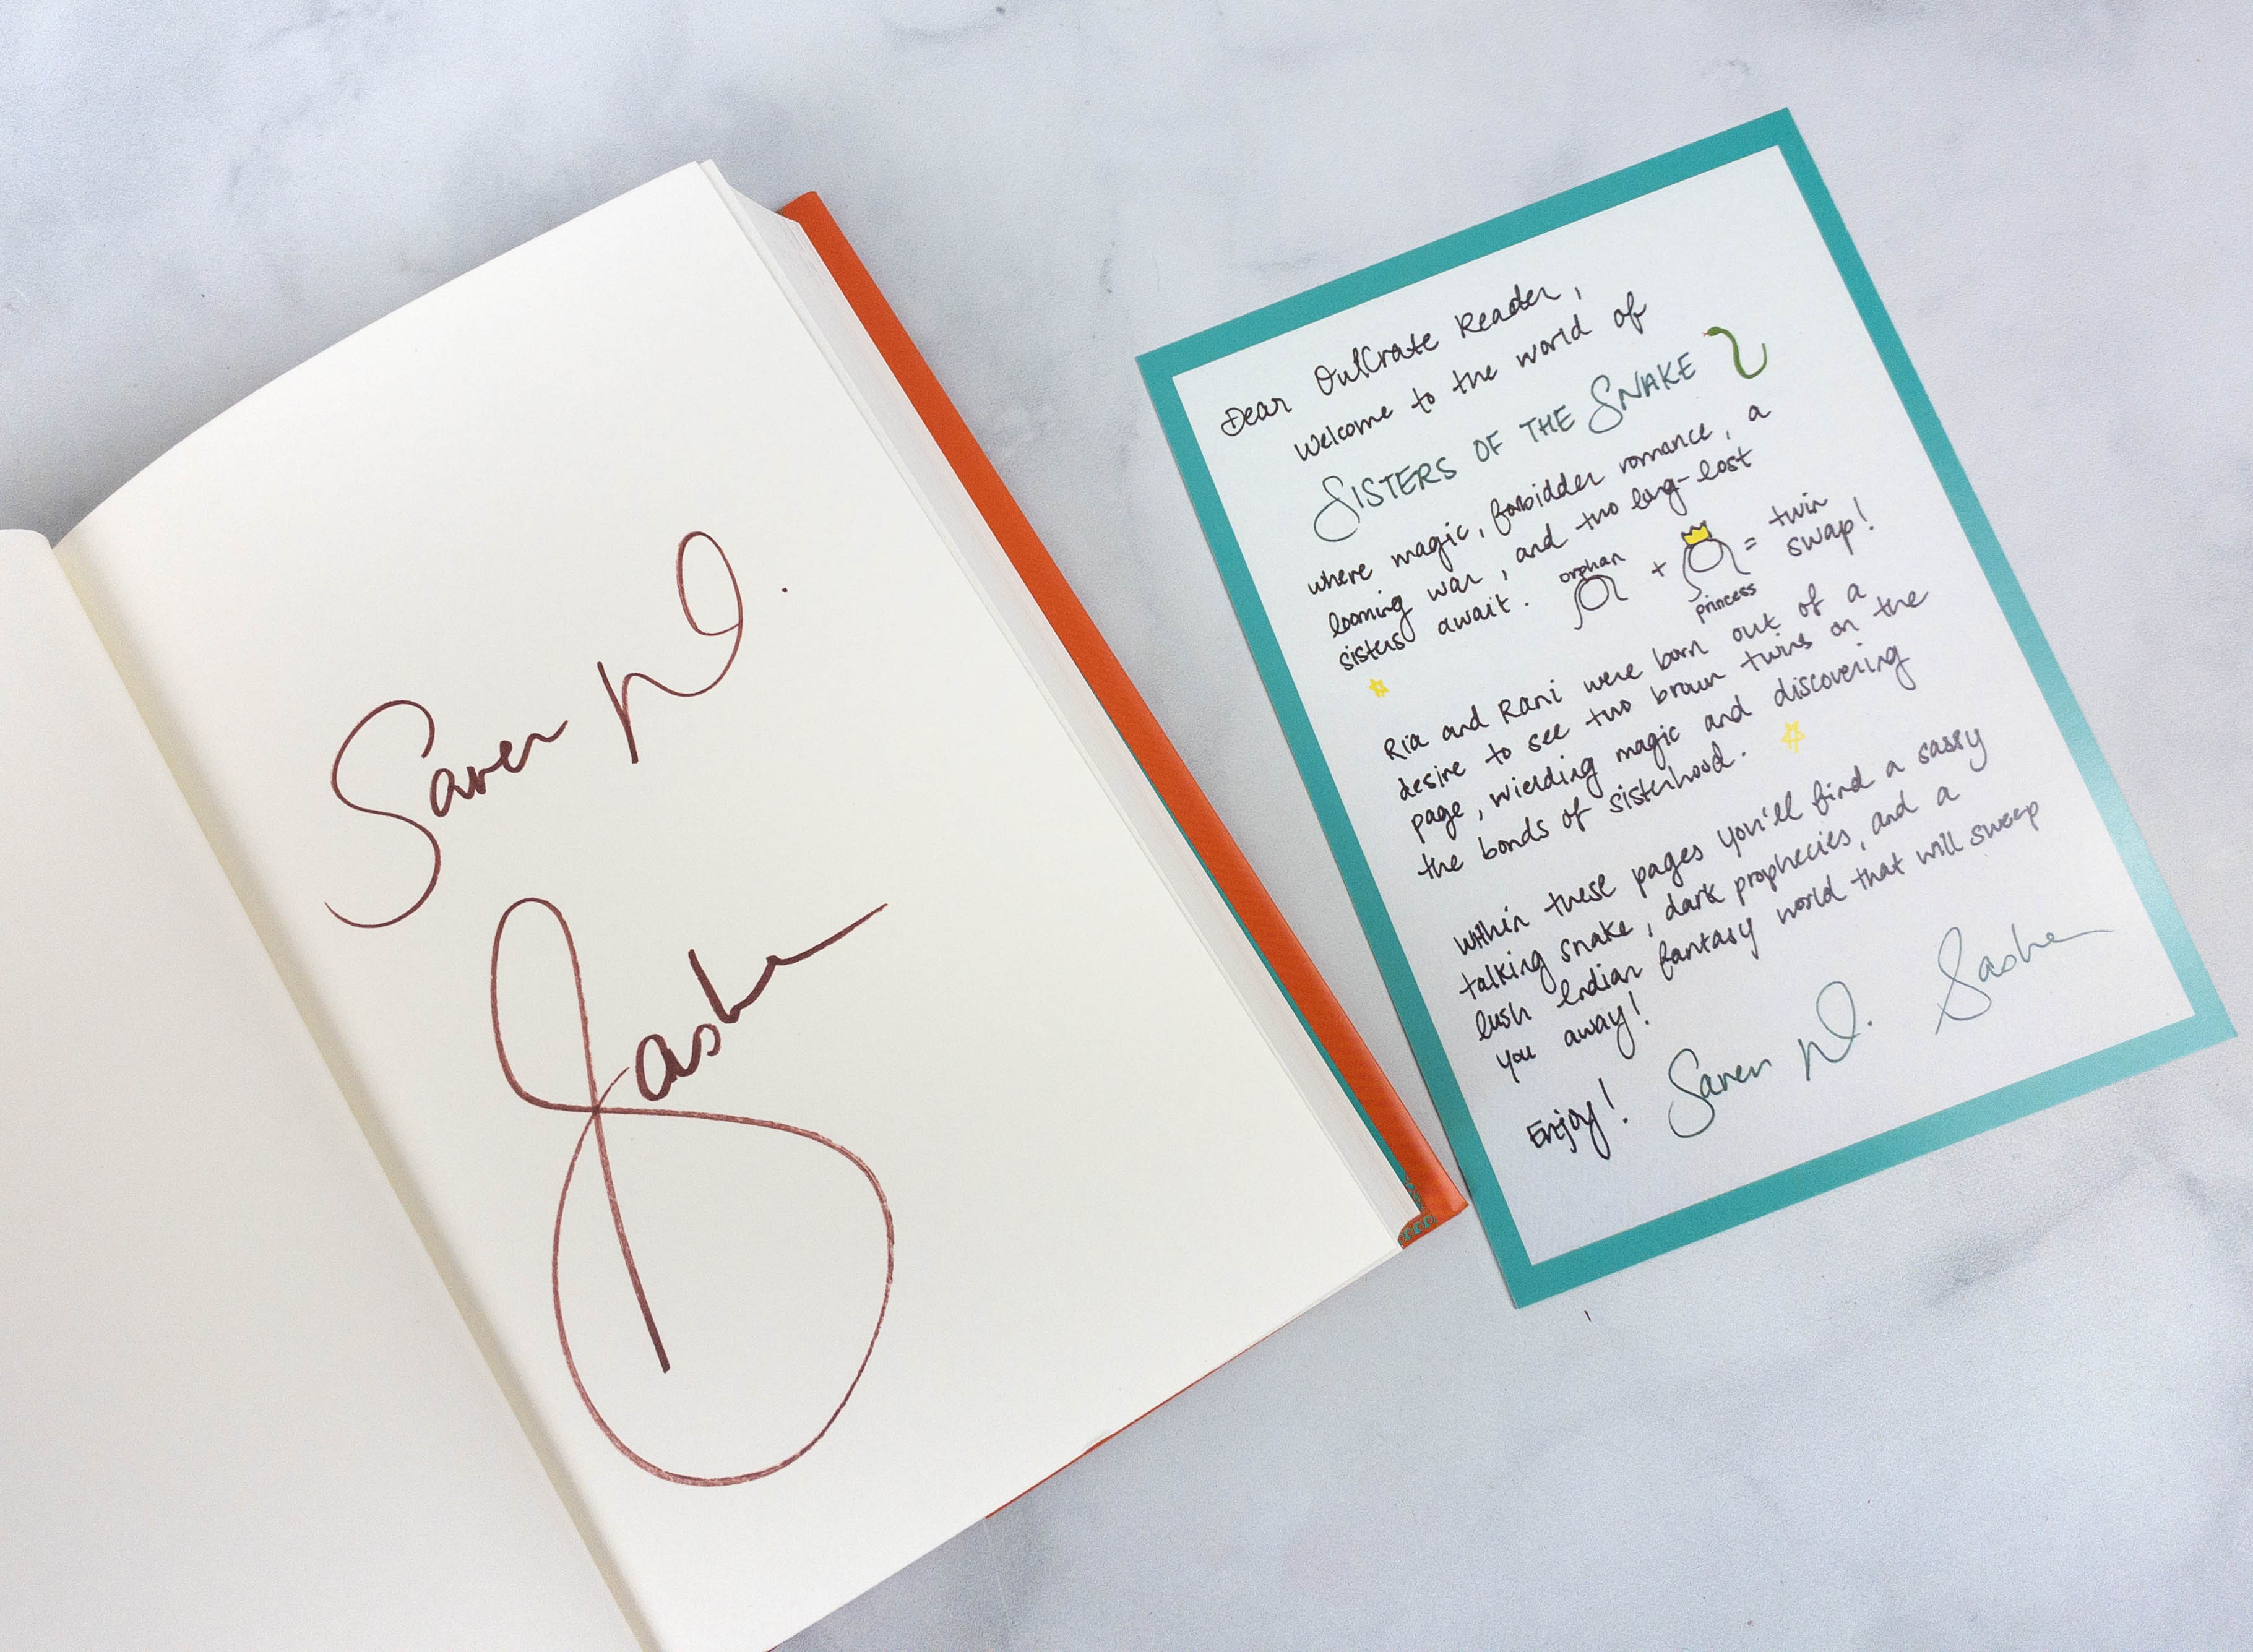 Saren N.
Sasha
Dear OwlCrate Reader,
Welcome to the world of
SISTERS OF THE SNAKE
where magic, forbidden romance, a
looming war, and two long-lost
sisters await.
orphan
+
princess
= twin
swap!
Ria and Rani were born out of a
desire to see two brown twins on the
page, wielding magic and discovering
the bonds of sisterhood.
Within these pages you'll find a sassy
talking snake, dark prophecies, and a
lush Indian fantasy world that will sweep
you away!
Enjoy! Saren N. Sasha